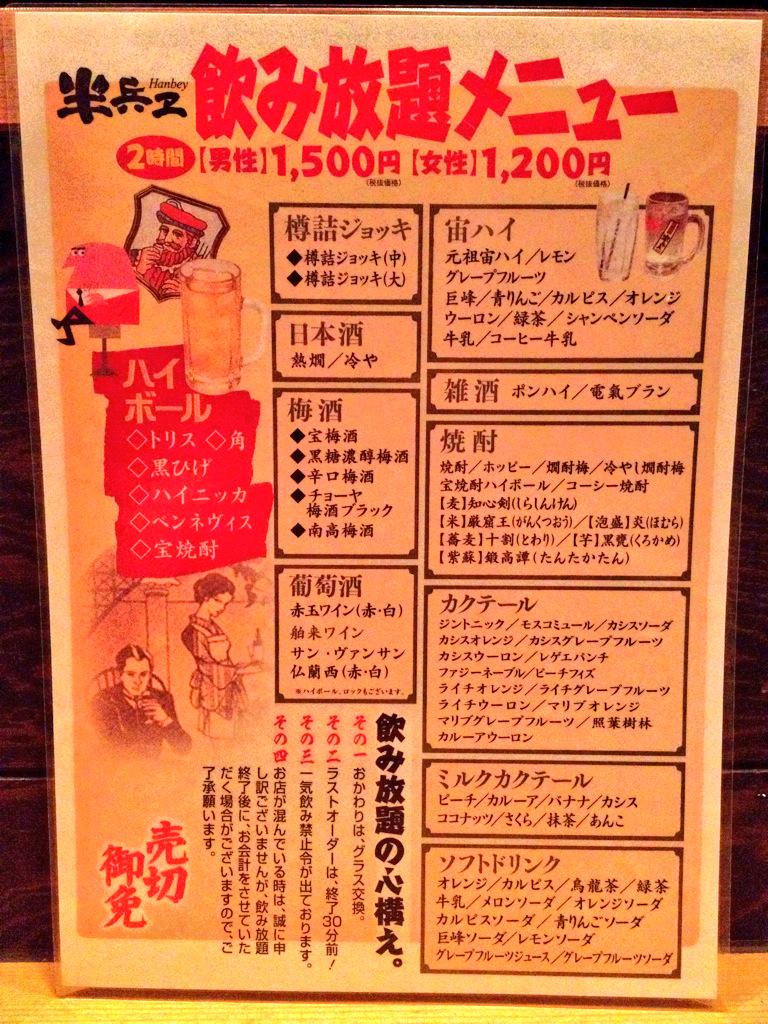 半兵ヱ
Hanbey
飲み放題メニュー
2時間【男性】1,500円【女性】1,200円
(税抜価格)
(税抜価格)
ハイボール
◇トリス ◇角
◇黒ひげ
◇ハイニッカ
◇ベンネヴィス
◇宝焼酎
樽詰ジョッキ
◆樽詰ジョッキ(中)
◆樽詰ジョッキ(大)
日本酒
熱燗/冷や
梅酒
◆宝梅酒
◆黒糖濃醇梅酒
◆辛口梅酒
◆チョーヤ
梅酒ブラック
◆南高梅酒
葡萄酒
赤玉ワイン(赤・白)
舶来ワイン
サン・ヴァンサン
仏蘭西(赤・白)
※ハイボール、ロックもございます。
宙ハイ
元祖宙ハイ/レモン
グレープフルーツ
巨峰/青りんご/カルピス/オレンジ
ウーロン/緑茶/シャンペンソーダ
牛乳/コーヒー牛乳
雑酒 ポンハイ/電氣ブラン
焼酎
焼酎/ホッピー/燗酎梅/冷やし燗酎梅
宝焼酎ハイボール/コーシー焼酎
【麦】知心剣(しらしんけん)
【米】厳窟王(がんくつおう)/【泡盛】炎(ほむら)
【蕎麦】十割(とわり)/【芋】黒甕(くろかめ)
【紫蘇】鍛高譚(たんたかたん)
カクテール
ジントニック/モスコミュール/カシスソーダ
カシスオレンジ/カシスグレープフルーツ
カシスウーロン/レゲエパンチ
ファジーネーブル/ピーチフィズ
ライチオレンジ/ライチグレープフルーツ
ライチウーロン/マリブオレンジ
マリブグレープフルーツ/照葉樹林
カルーアウーロン
ミルクカクテール
ピーチ/カルーア/バナナ/カシス
ココナッツ/さくら/抹茶/あんこ
ソフトドリンク
オレンジ/カルピス/烏龍茶/緑茶
牛乳/メロンソーダ/オレンジソーダ
カルピスソーダ/青りんごソーダ
巨峰ソーダ/レモンソーダ
グレープフルーツジュース/グレープフルーツソーダ
飲み放題の心構え。
その一 おかわりは、グラス交換。
その二 ラストオーダーは、終了30分前!
その三 一気飲み禁止令が出ております。
その四 お店が混んでいる時は、誠に申
し訳ございませんが、飲み放題
終了後に、お会計をさせていた
だく場合がございますので、ご
了承願います。
売切
御免